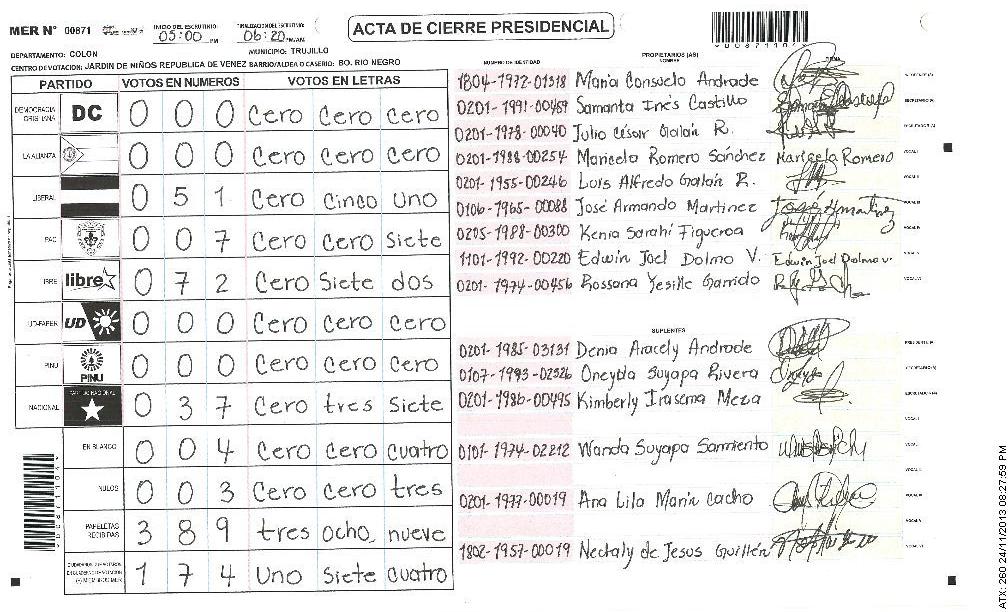 MER N° 00871 INICIO DEL ESCRUTINIO: 05:00 PM FINALIZACION DEL ESCRUTINIO: 06:20 PM/AM ACTA DE CIERRE PRESIDENCIAL
DEPARTAMENTO: COLON MUNICIPIO: TRUJILLO
CENTRO DE VOTACION: JARDIN DE NIÑOS REPUBLICA DE VENEZ BARRIO/ALDEA O CASERIO: BO. RIO NEGRO
PARTIDO VOTOS EN NUMEROS VOTOS EN LETRAS
DEMOCRACIA CRISTIANA DC 0 0 0 Cero Cero Cero
LA ALIANZA 0 0 0 Cero Cero Cero
LIBERAL 0 5 1 Cero Cinco Uno
PAC 0 0 7 Cero Cero Siete
LIBRE libre 0 7 2 Cero Siete dos
UD-FAPER UD 0 0 0 Cero Cero Cero
PINU PINU 0 0 0 Cero Cero Cero
NACIONAL PARTIDO NACIONAL 0 3 7 Cero tres Siete
EN BLANCO 0 0 4 Cero Cero cuatro
NULOS 0 0 3 Cero Cero tres
PAPELETAS RECIBIDAS 3 8 9 tres ocho nueve
1 7 4 Uno Siete cuatro
NUMERO DE IDENTIDAD PROPIETARIOS (AS) NOMBRE FIRMA
1804-1972-01318 Maria Consuelo Andrade
0201-1991-00469 Samanta Inés Castillo
0201-1978-00040 Julio César Galán R.
0201-1988-00254 Maricela Romero Sánchez Maricela Romero
0201-1955-00246 Luis Alfredo Galán R.
0106-1965-00088 José Armando Martinez
0205-1988-00300 Kenia Sarahi Figueroa
1101-1992-00220 Edwin Joel Dolmo V. Edwin Joel Dolmo V.
0201-1974-00456 Rossana Yesille Garrido
SUPLENTES
0201-1985-03131 Denia Aracely Andrade
0107-1993-02526 Oneyda Suyapa Rivera
0201-1986-00495 Kimberly Irasema Meza
0101-1974-02212 Wanda Suyapa Sarmiento
0201-1977-00019 Ana Lila Maria Cacho
1802-1957-00019 Nectaly de Jesus Guillén
ATX: 260 24/11/2013 08:27:59 PM